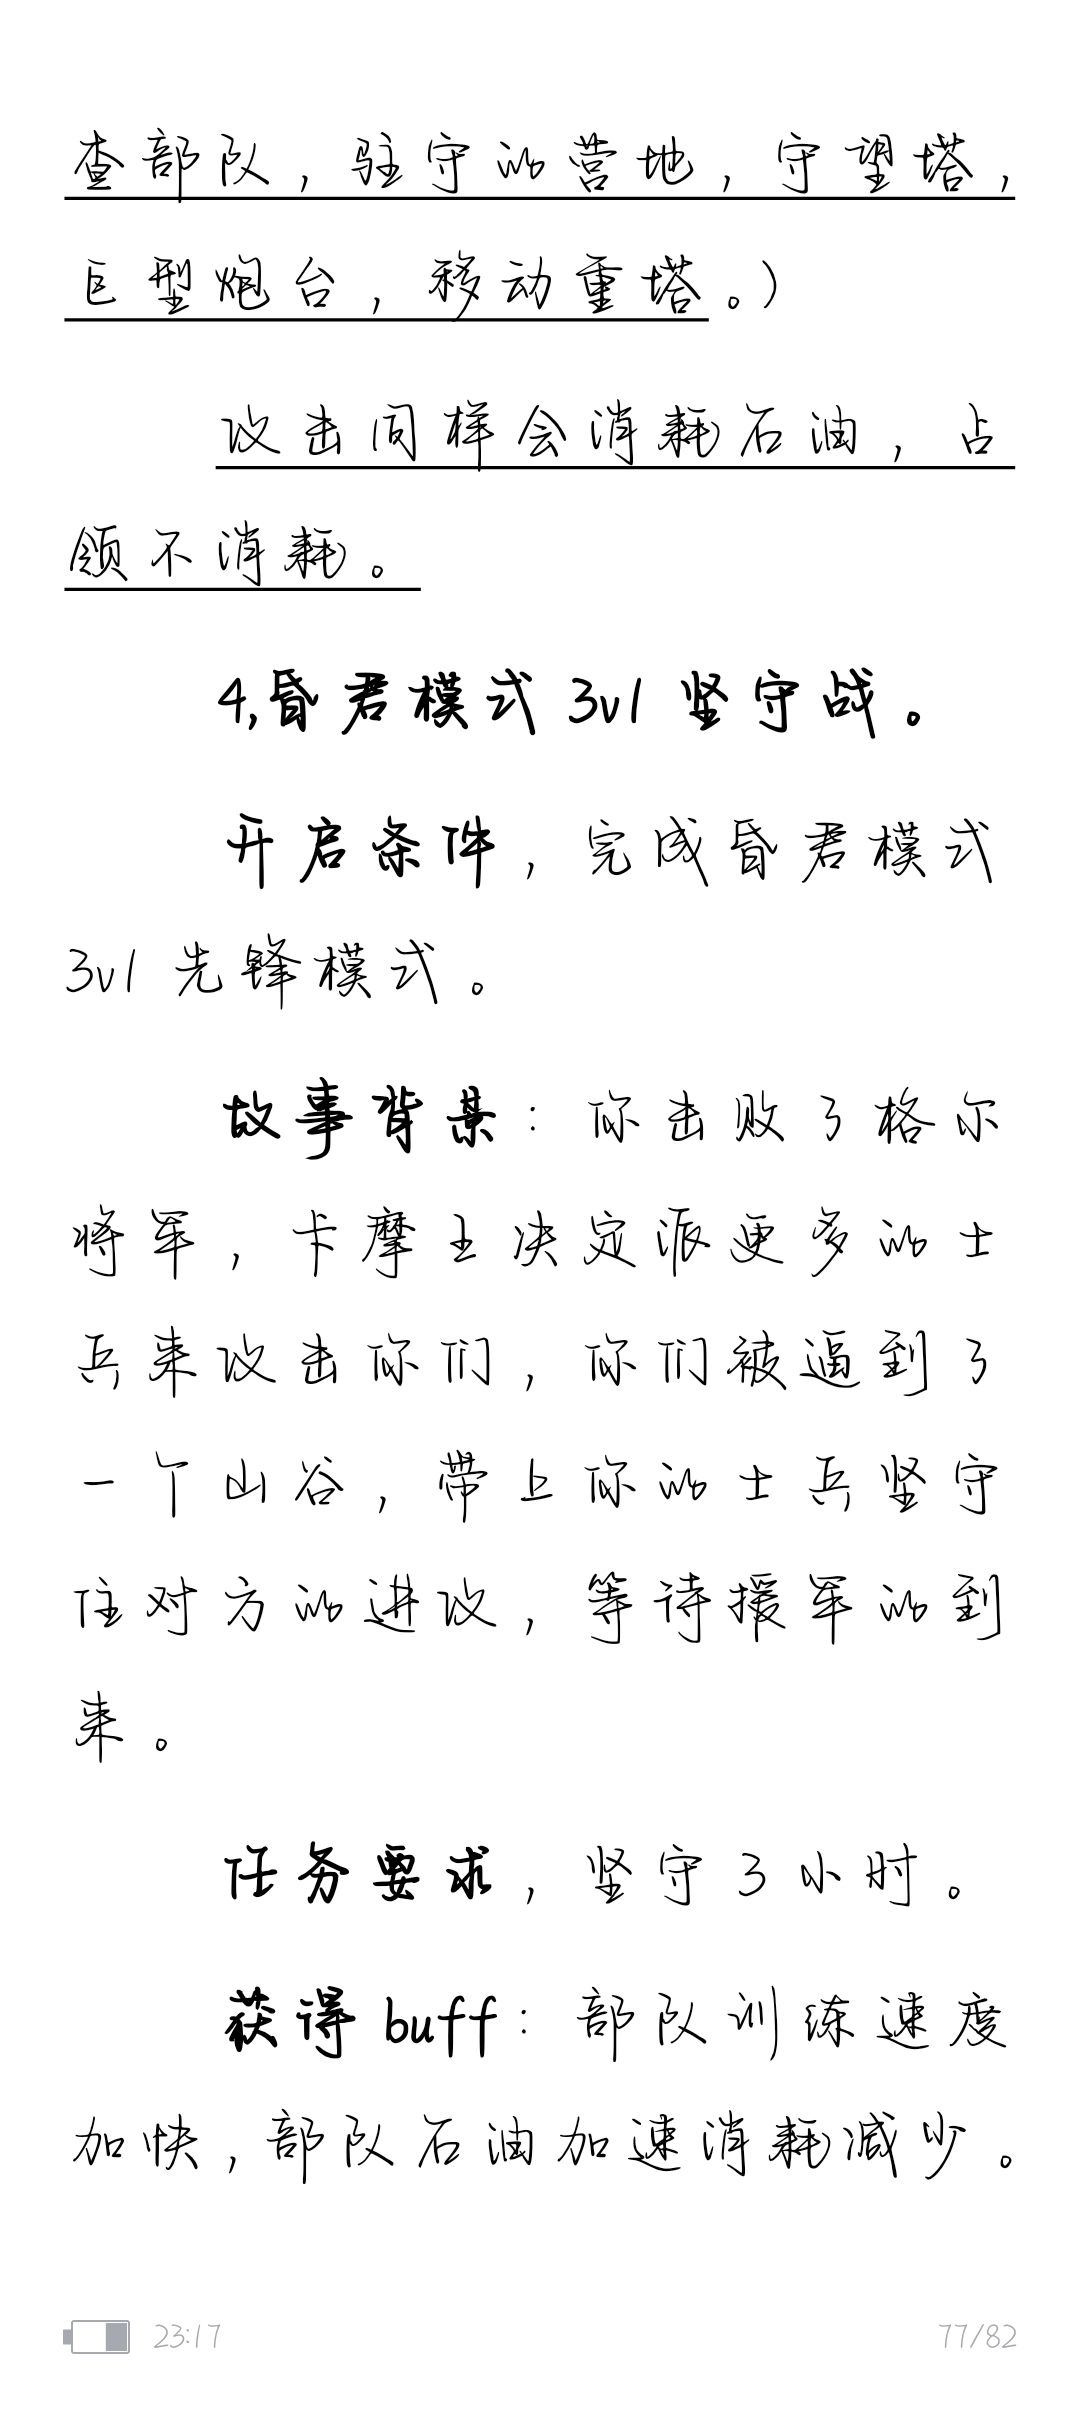 查部队，驻守的营地，守望塔，
巨型炮台，移动重塔。）
攻击同样会消耗石油，占
领不消耗。
4,昏君模式3v1坚守战。
开启条件，完成昏君模式
3v1先锋模式。
故事背景：你击败了格尔
将军，卡摩王决定派更多的士
兵来攻击你们，你们被逼到了
一个山谷，带上你的士兵坚守
住对方的进攻，等待援军的到
来。
任务要求，坚守3小时。
获得buff：部队训练速度
加快，部队石油加速消耗减少。
23:17 77/82